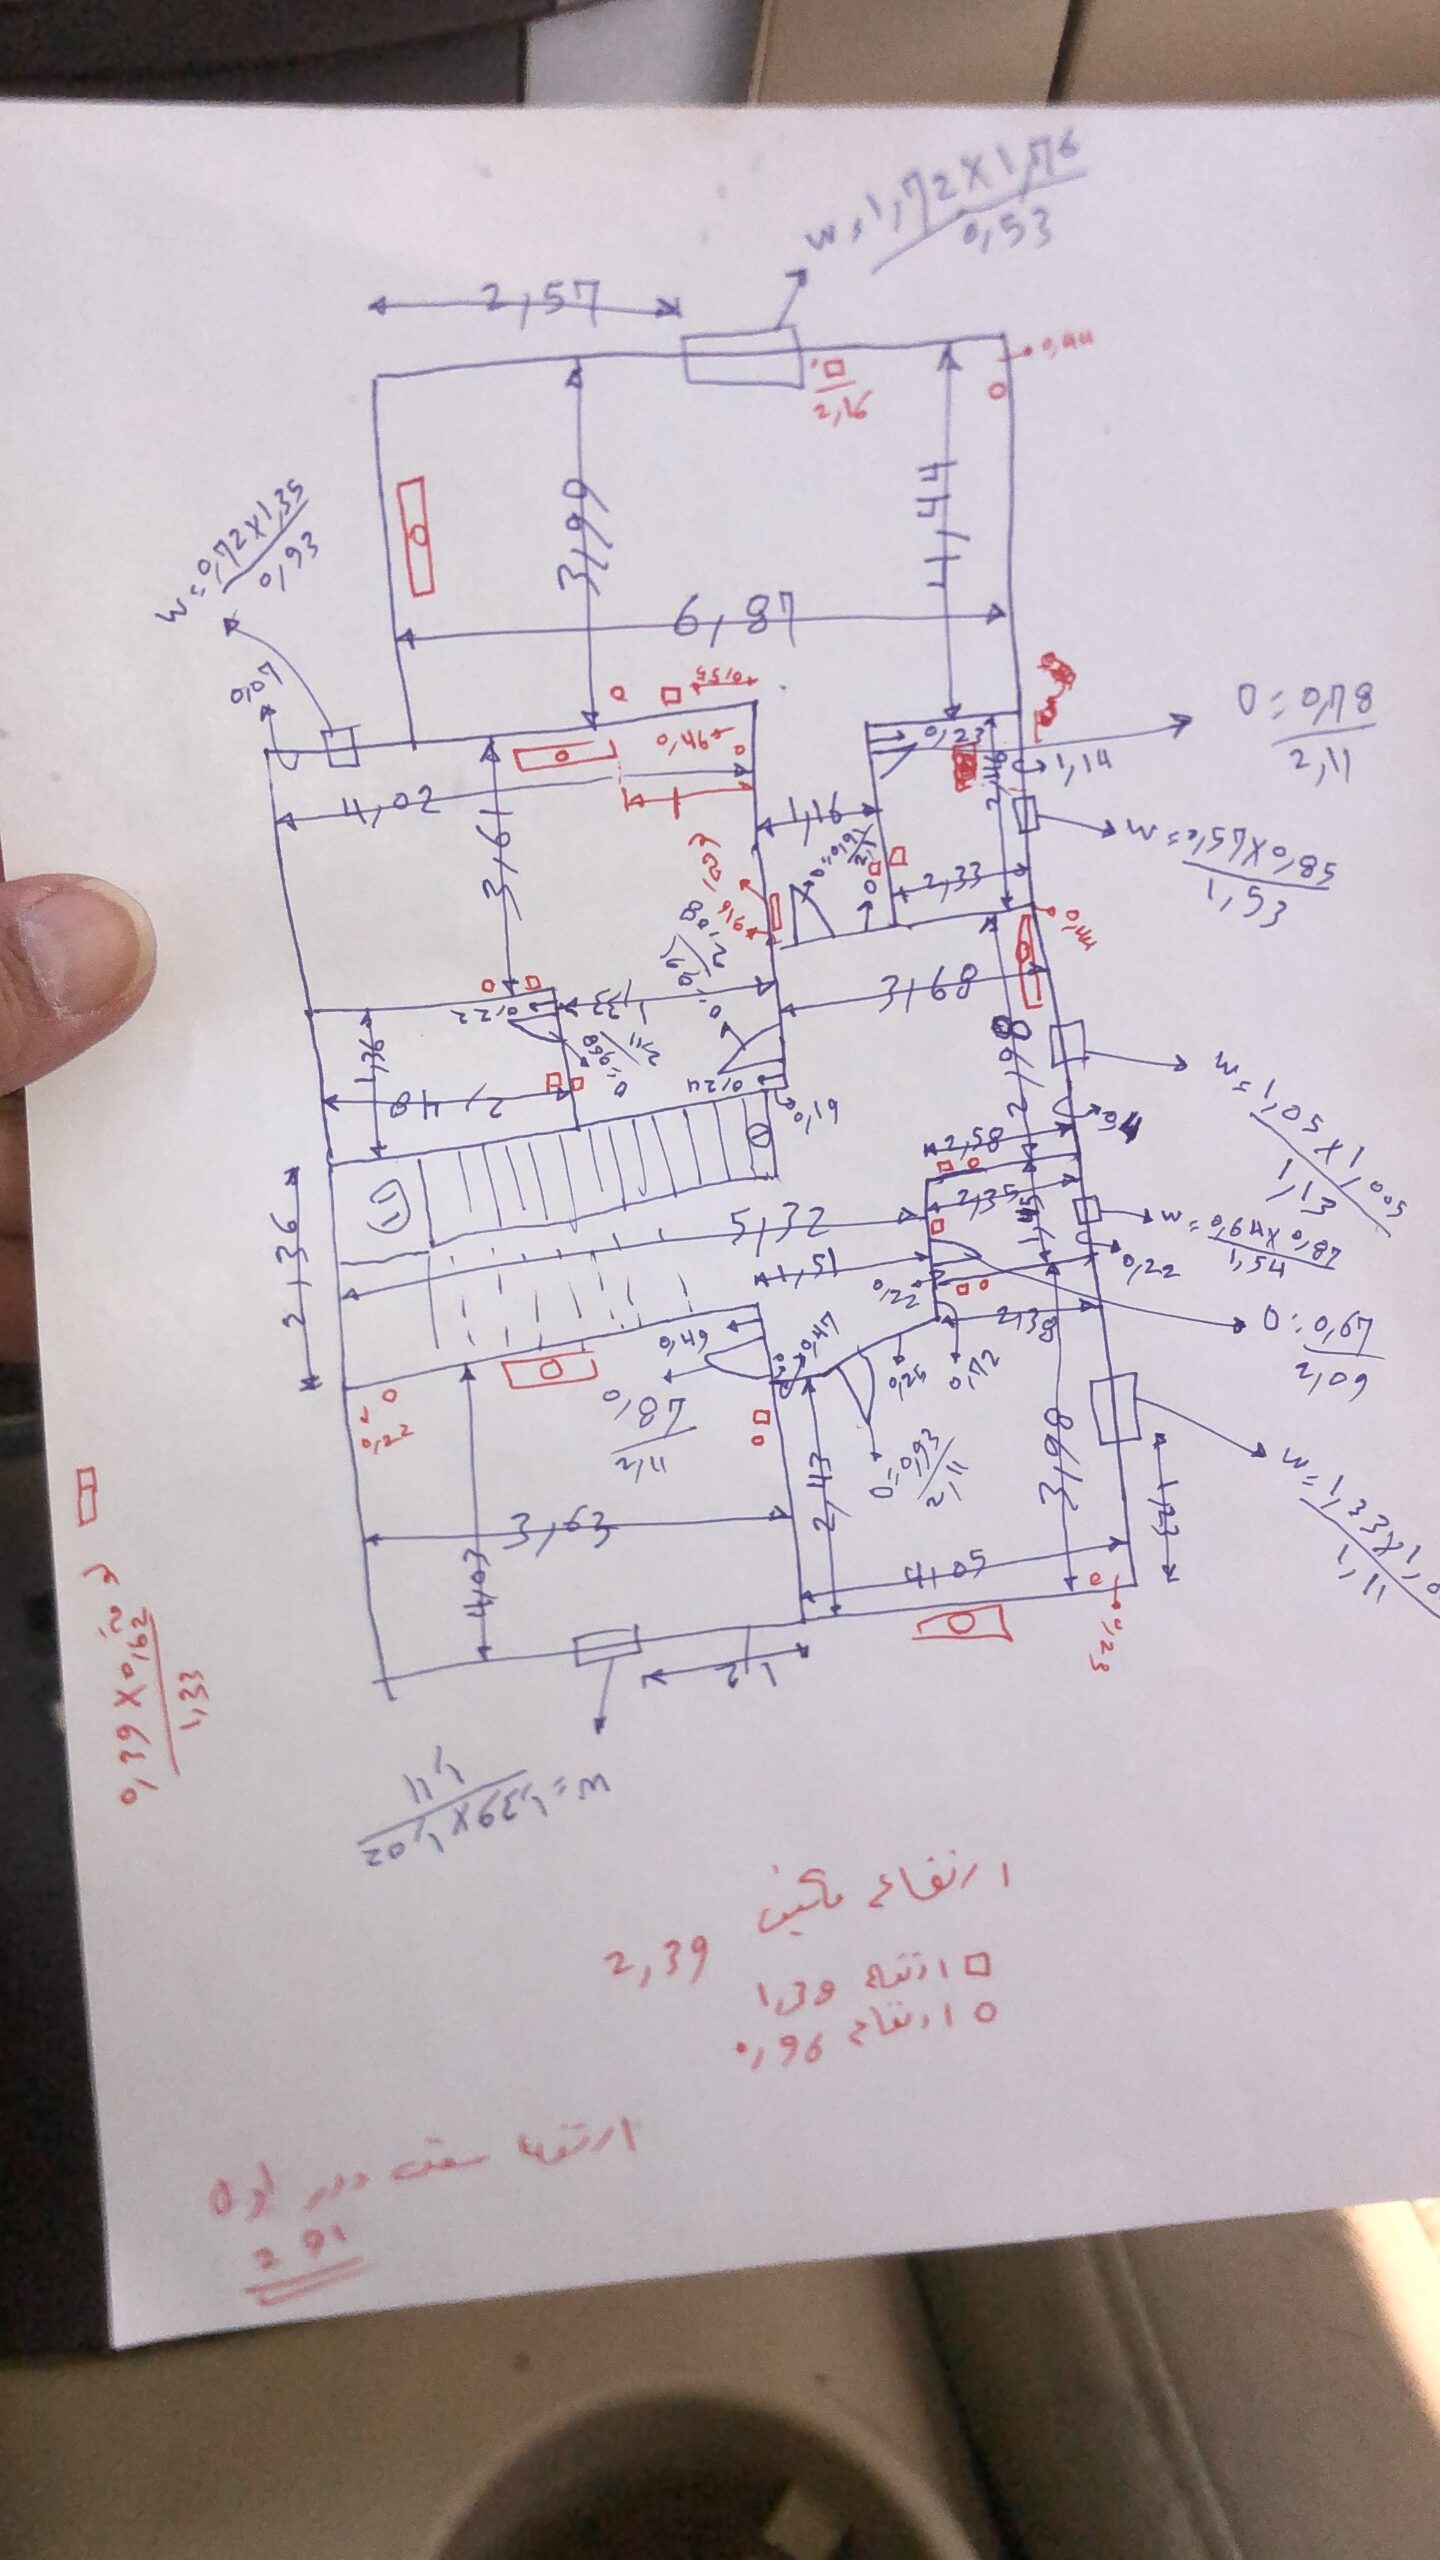 W=1,72X1,76
0,53
2,57
0,44
2,16
W=0,72X1,35
0,93
3,99
4,44
6,87
0,07
0,55
0,46
0,23
O=0,78
2,11
1,14
4,02
1,16
3,61
W=0,57X0,85
1,53
2,33
2,08
3,68
1,33
0,22
2,11
1,36
2,48
0,24
0,19
2,98
W=1,05X1,005
1,13
2,58
2,35
1,45
W=0,64X0,87
1,54
5,32
1,51
0,22
0,22
2,36
2,38
O=0,67
2,09
0,49
0,47
0,25
0,72
0,87
2,11
0,22
O=0,93
2,11
2,43
3,98
3,63
4,03
4,05
1,23
W=1,33X1,0
1,11
0,25
1,2
W=1,39X1,02
1,11
0,39X0,62
1,33
ارتفاع ماكينه
2,39
□ ارتفاع 1,39
○ ارتفاع 0,96
ارتفاع سقف دور اول
2 91